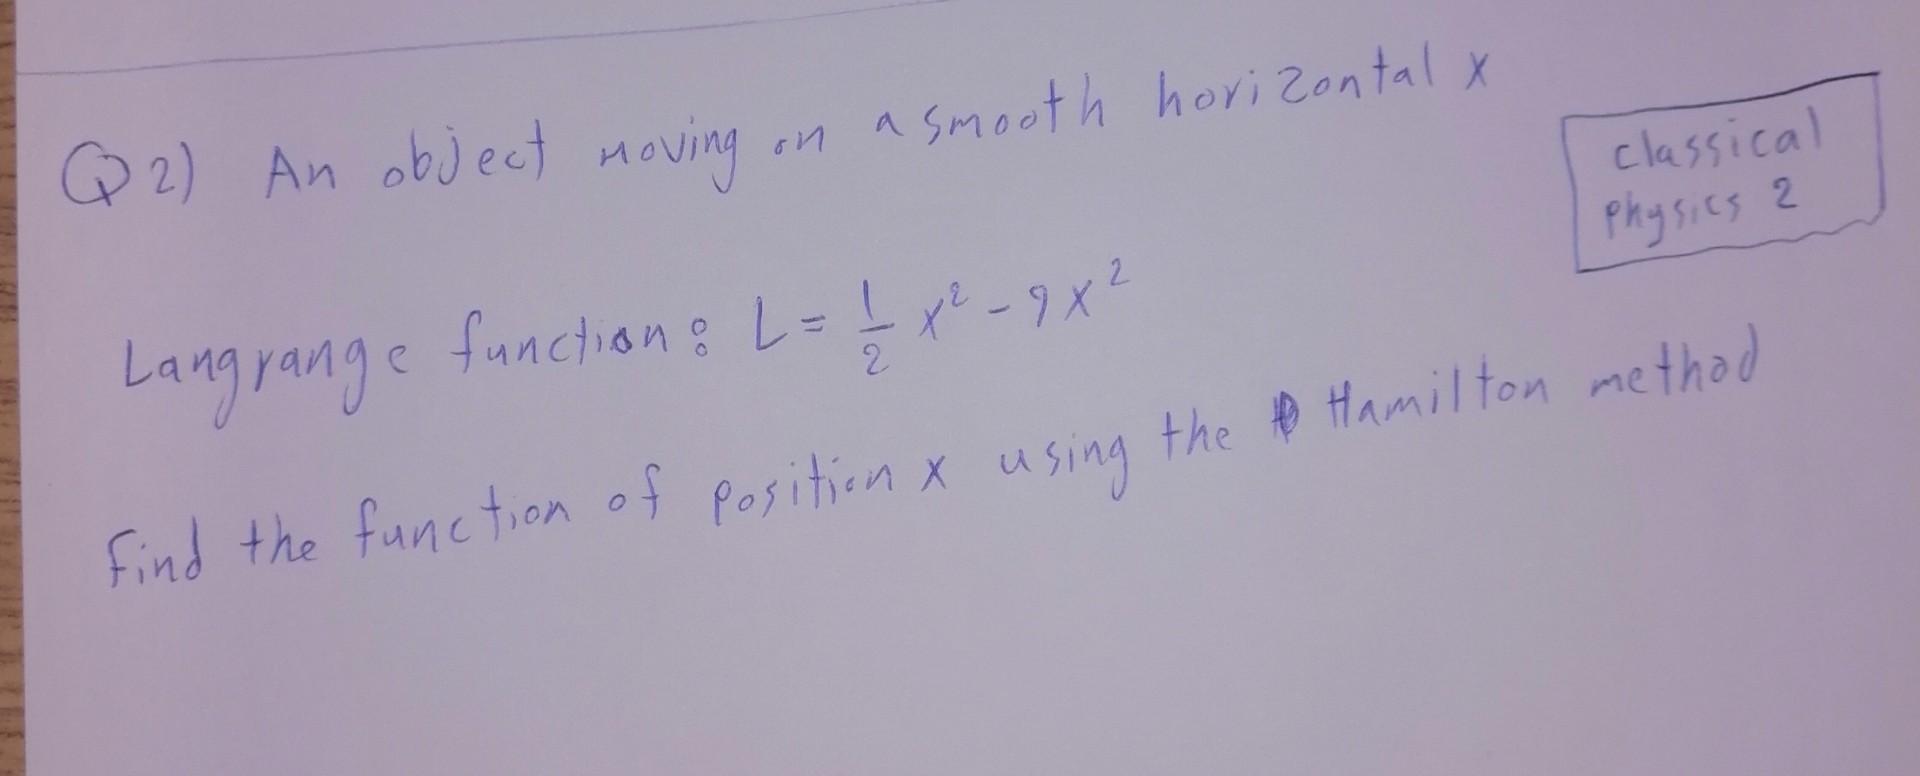 Q2) An object moving on a smooth horizontal x
classical
physics 2
Langrange function: L = 1/2 x² - 9x²
Find the function of position x using the Hamilton method